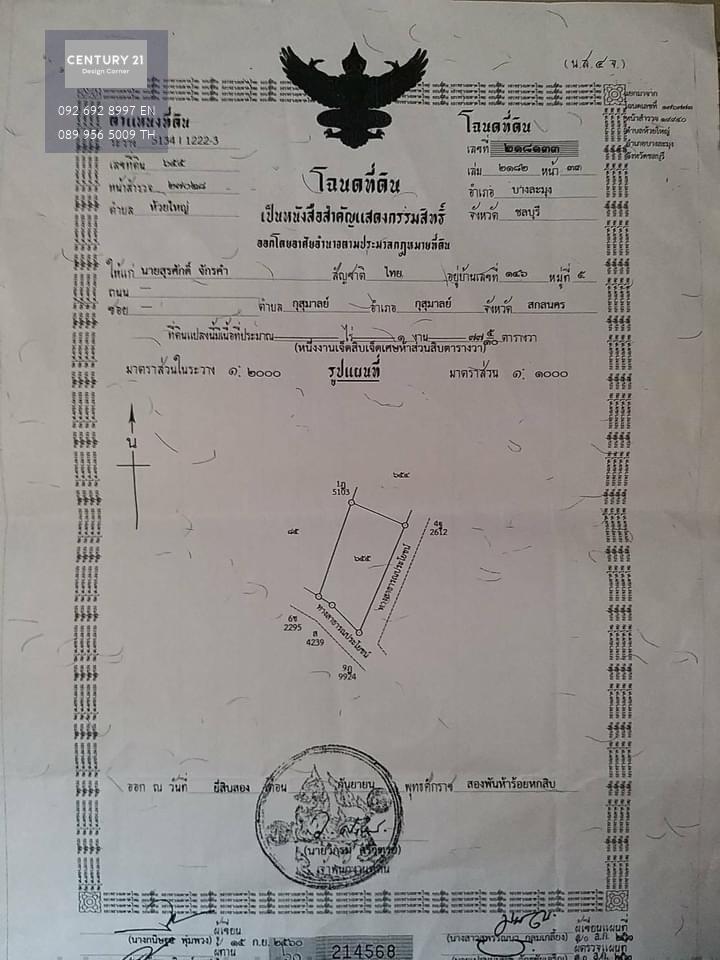 CENTURY 21
Design Corner
092 692 8997 EN
089 956 5009 TH
(น.ส.๔ จ.)
ตำแหน่งที่ดิน
ระวาง 5134 I 1222-3
เลขที่ดิน ๖๕๕
หน้าสำรวจ ๒๗๐๒๘
ตำบล ห้วยใหญ่
โฉนดที่ดิน
เลขที่ ๒๑๘๑๓๓
เล่ม ๒๑๘๒ หน้า ๓๓
อำเภอ บางละมุง
จังหวัด ชลบุรี
แยกมาจาก
โฉนดเลขที่
หน้าสำรวจ ๑๙๙๔๐
ตำบลห้วยใหญ่
อำเภอบางละมุง
จังหวัดชลบุรี
โฉนดที่ดิน
เป็นหนังสือสำคัญแสดงกรรมสิทธิ์
ออกโดยอาศัยอำนาจตามประมวลกฎหมายที่ดิน
ให้แก่ นายสุรศักดิ์ จักรคำ สัญชาติ ไทย อยู่บ้านเลขที่ ๑๔๖ หมู่ที่ ๕
ถนน —
ซอย — ตำบล กุสุมาลย์ อำเภอ กุสุมาลย์ จังหวัด สกลนคร
ที่ดินแปลงนี้มีเนื้อที่ประมาณ — ไร่ ๑ งาน ๗๗ ๕/๑๐ ตารางวา
(หนึ่งงานเจ็ดสิบเจ็ดเศษห้าส่วนสิบตารางวา)
มาตราส่วนในระวาง ๑: ๒๐๐๐ รูปแผนที่ มาตราส่วน ๑: ๑๐๐๐
น
๖๕๔
1ฎ
5103
4ฐ
2612
๘๕
๖๕๕
ทางสาธารณประโยชน์
ทางสาธารณประโยชน์
6ช
2295
ส
4239
9ฎ
9924
ออก ณ วันที่ ยี่สิบสอง เดือน กันยายน พุทธศักราช สองพันห้าร้อยหกสิบ
เจ้าพนักงานที่ดิน
ผู้เขียน
พุ่มพวง) ๑๕ ก.ย. ๒๕๖๐
ผู้ทาน
214568
ผู้เขียนแผนที่
ผู้ตรวจแผนที่